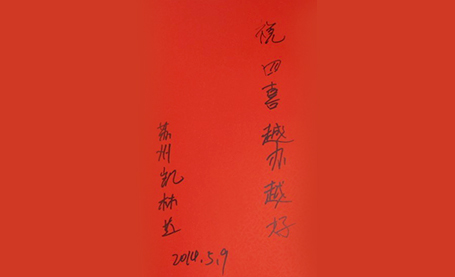 祝四喜越办越好
苏州凯林
2014.5.9